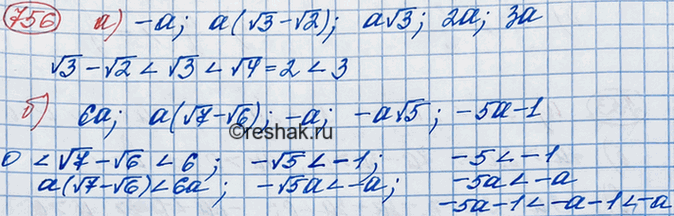 756 а) -a; a(√3-√2); a√3; 2a; 3a
√3-√2<√3<√4=2<3
б) 6a; a(√7-√6); -a; -a√5; -5a-1
©reshak.ru
0<√7-√6<6; -√5<-1; -5<-1
a(√7-√6)<6a; -√5a<-a; -5a<-a
-5a-1<-a-1<-a